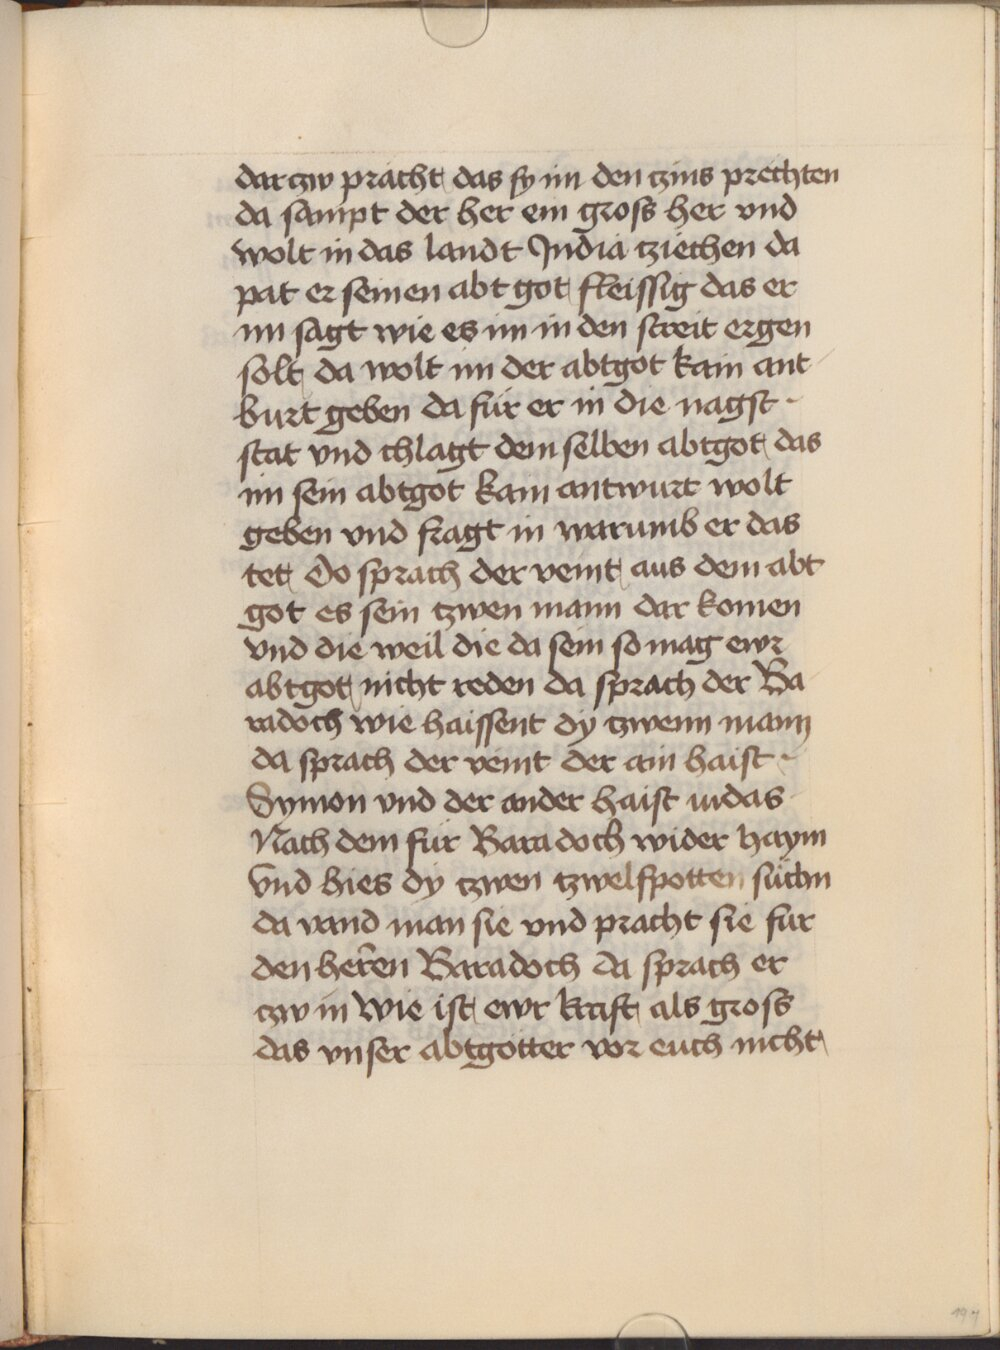 darczw pracht das sy im den czins prechten
da sampt der her ein gross her vnd
wolt in das landt India cziechen da
pat er seinen abtgot fleissig das er
im sagt wie es im in den streit ergen
solt da wolt im der abtgot kain ant
burt geben da für er in die nagst
stat vnd chlagt dem selben abtgot das
im sein abtgot kain antwurt wolt
geben vnd fragt in warumb er das
tet Do sprach der veint aus dem abt
got es sein tzwen mann dar komen
vnd die weil die da sein so mag ewr
abtgot nicht reden da sprach der Ba
radoch wie haissent dy tzwenn mann
da sprach der veint der ain haist
Symon vnd der ander haist iudas
Nach dem für Baradoch wider haym
vnd hies dy tzwen tzwelfpotten süchn
da vand man sie vnd pracht sie fur
den herren Baradoch da sprach er
czw in wie ist ewr kraft als gross
das vnser abtgötter vor euch nicht
197